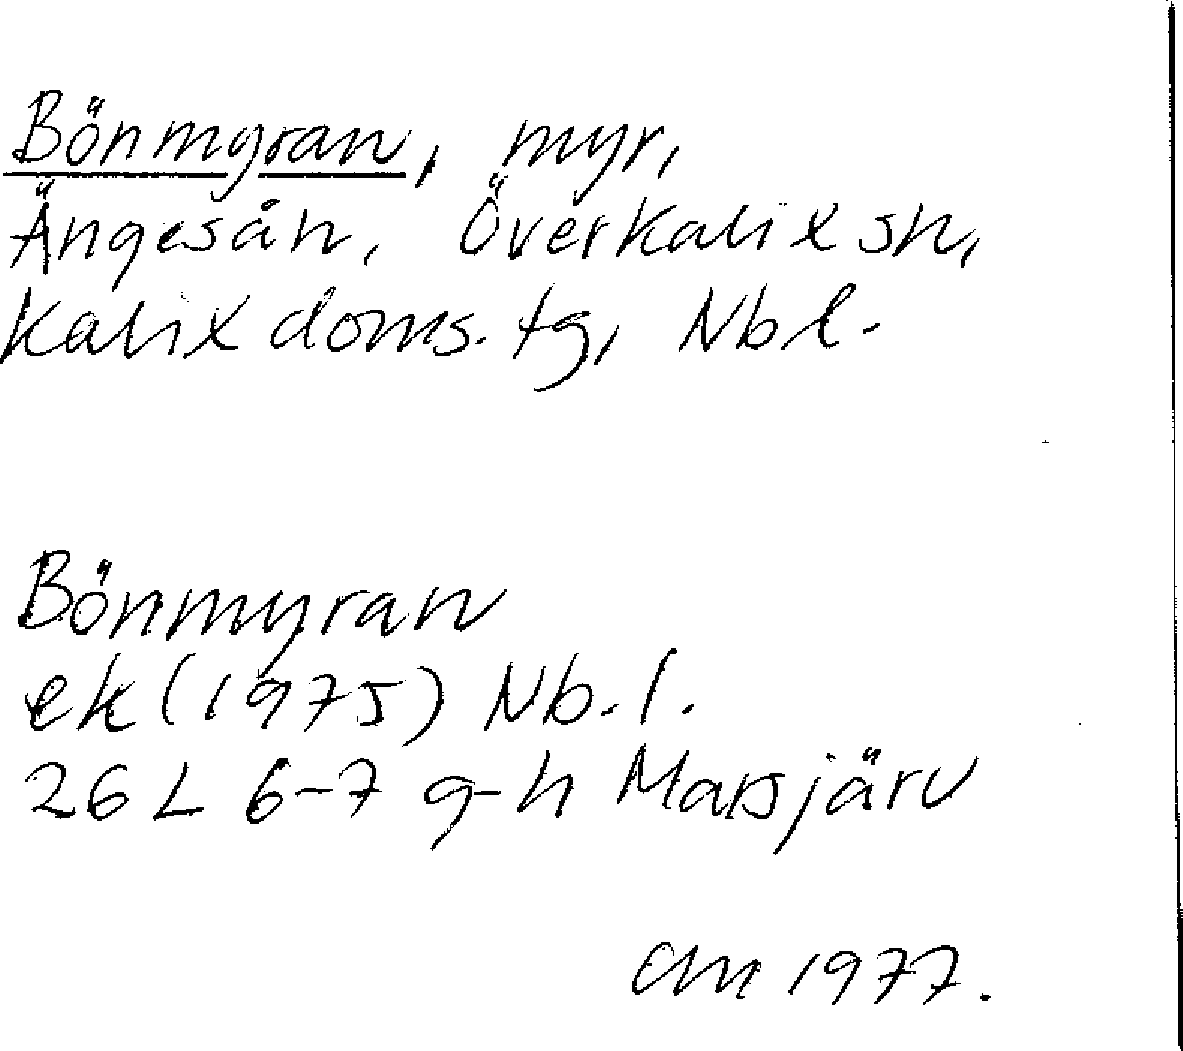 Bönmyran, myr,
Ängesån, Överkalix sn,
Kalix doms. tg, Nbl.
Bönmyran
ek (1975) Nb. l.
26 L 6-7 g-h Marsjärv
CM 1977.